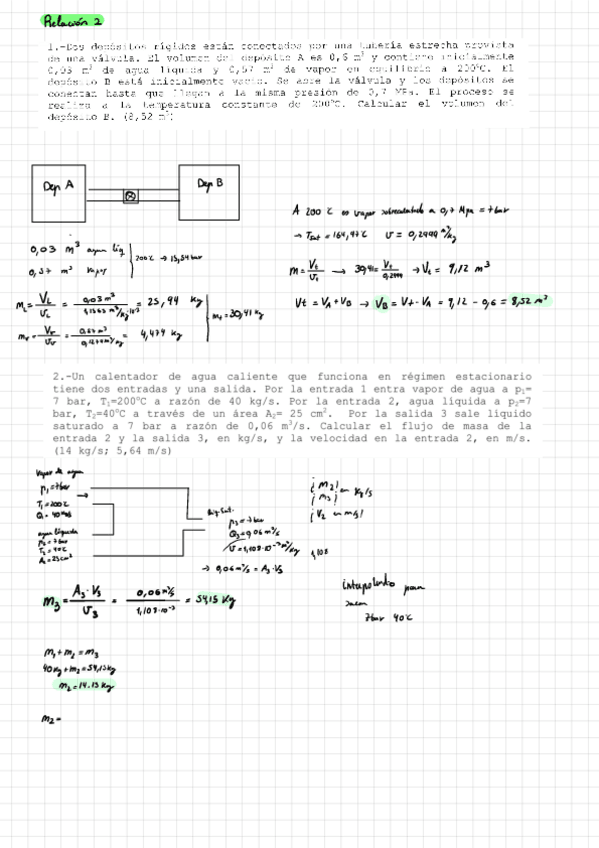 Relación 2
1.-Dos depósitos rígidos están conectados por una tubería estrecha provista
de una válvula. El volumen del depósito A es 0,6 m³ y contiene inicialmente
0,03 m³ de agua líquida y 0,57 m³ de vapor en equilibrio a 200ºC. El
depósito B está inicialmente vacío. Se abre la válvula y los depósitos se
conectan hasta que llegan a la misma presión de 0,7 MPa. El proceso se
realiza a la temperatura constante de 200ºC. Calcular el volumen del
depósito B. (8,52 m³)
Dep A
Dep B
A 200 ℃ es vapor sobrecalentado a 0,7 Mpa = 7 bar
→ Tsat = 164,97℃ υ = 0,2999 m³/kg
0,03 m³ agua liq
0,57 m³ vapor
200℃ → 15,54 bar
m = Vt/υt → 30,41 = Vt/0,2999 → Vt = 9,12 m³
mL = VL/υL = 0,03 m³ = 25,94 kg
mv = Vv/υv = = 4,474 kg
mt = 30,41 kg
Vt = VA + VB → VB = Vt - VA = 9,12 - 0,6 = 8,52 m³
2.-Un calentador de agua caliente que funciona en régimen estacionario
tiene dos entradas y una salida. Por la entrada 1 entra vapor de agua a p₁=
7 bar, T₁=200ºC a razón de 40 kg/s. Por la entrada 2, agua líquida a p₂=7
bar, T₂=40ºC a través de un área A₂= 25 cm². Por la salida 3 sale líquido
saturado a 7 bar a razón de 0,06 m³/s. Calcular el flujo de masa de la
entrada 2 y la salida 3, en kg/s, y la velocidad en la entrada 2, en m/s.
(14 kg/s; 5,64 m/s)
Vapor de agua
p₁ = 7 bar
T₁ = 200℃
agua líquida
p₂ = 7 bar
T₂ = 40℃
A₂ = 25 cm²
liq Sat.
p₃ = 7 bar
Q₃ = 0,06 m³/s
υ = 1,108·10⁻³ m³/kg
→ 0,06 m³/s = A₃·V₃
¿ m₂ ? en kg/s
¿ m₃ ?
¿ V₂ en m/s ?
1,108
m₃ = A₃·V₃/υ₃ = 0,06 m³/s/1,108·10⁻³ = 54,15 kg
7 bar 40℃
m₁ + m₂ = m₃
40 kg + m₂ = 54,15 kg
m₂ = 14.15 kg
m₂ =